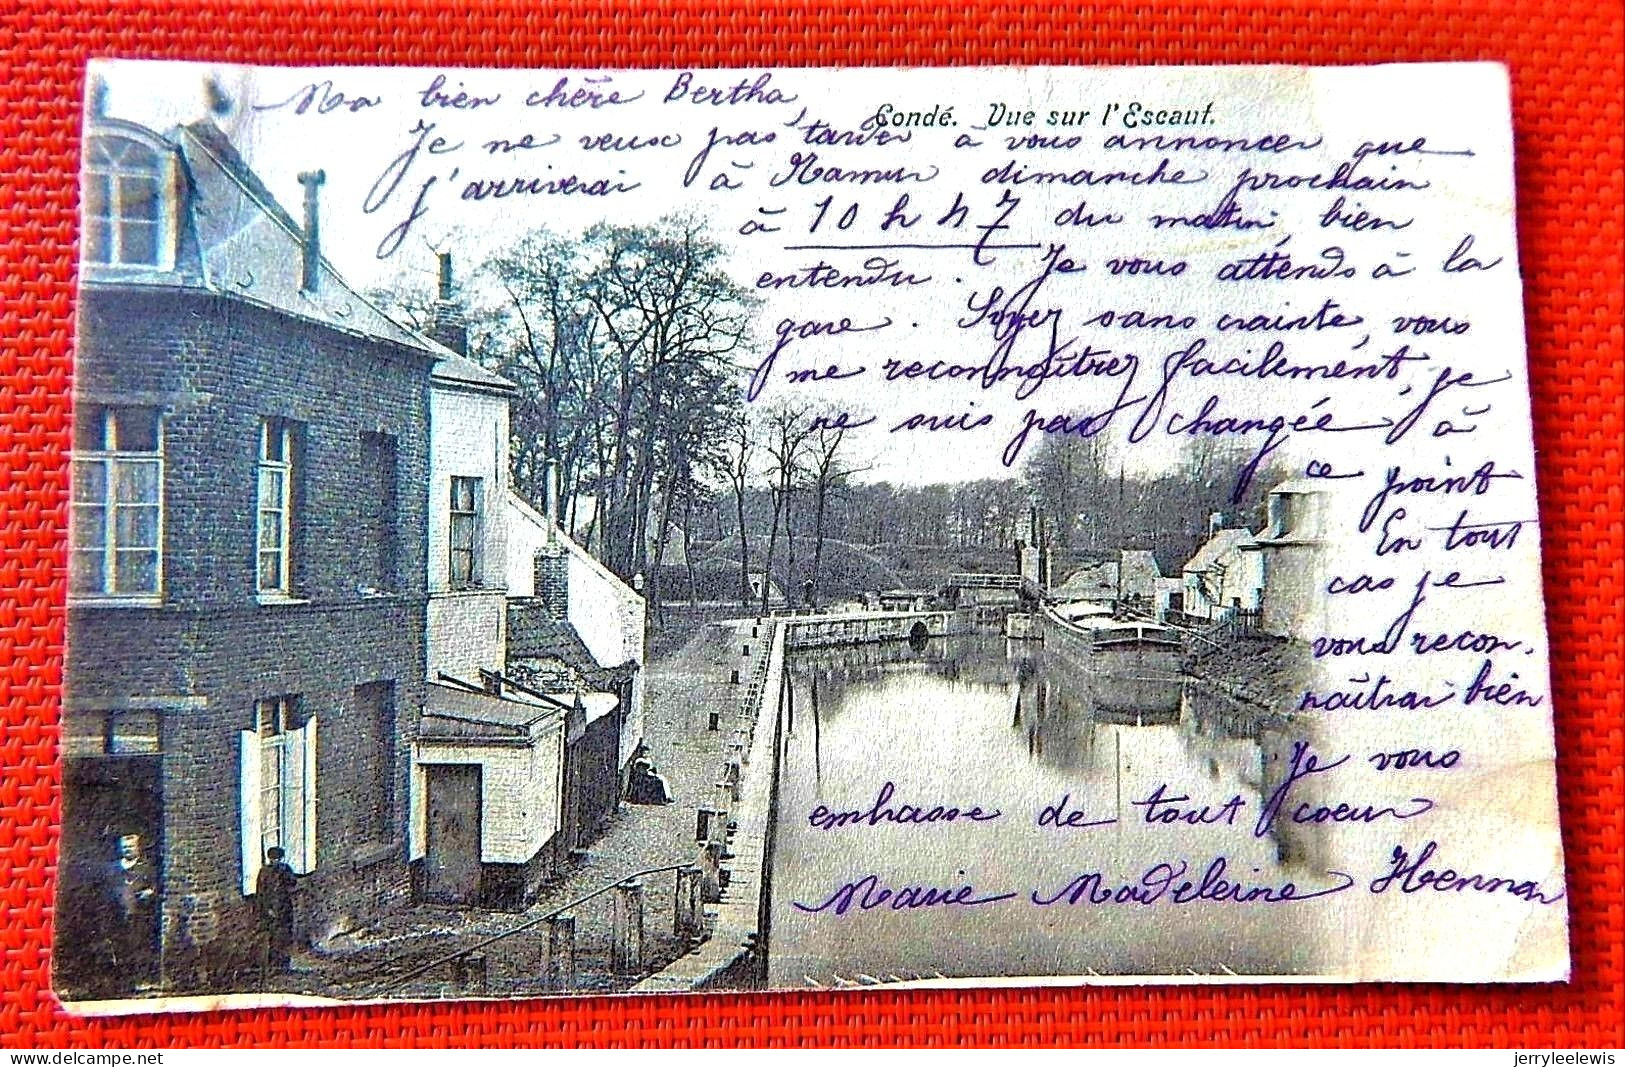 Ma bien chère Bertha,
Condé. Vue sur l'Escaut.
Je ne veux pas tarder à vous annoncer que
j'arriverai à Namur dimanche prochain
à 10 h 47 du matin, bien
entendu. Je vous attends à la
gare. Soyez sans crainte, vous
me reconnaîtrez facilement, je
ne suis pas changée à
ce point
En tout
cas je
vous recon-
naîtrai bien
Je vous
embrasse de tout coeur
Marie Madeleine Hennon
delcampe.net
jerryleelewis